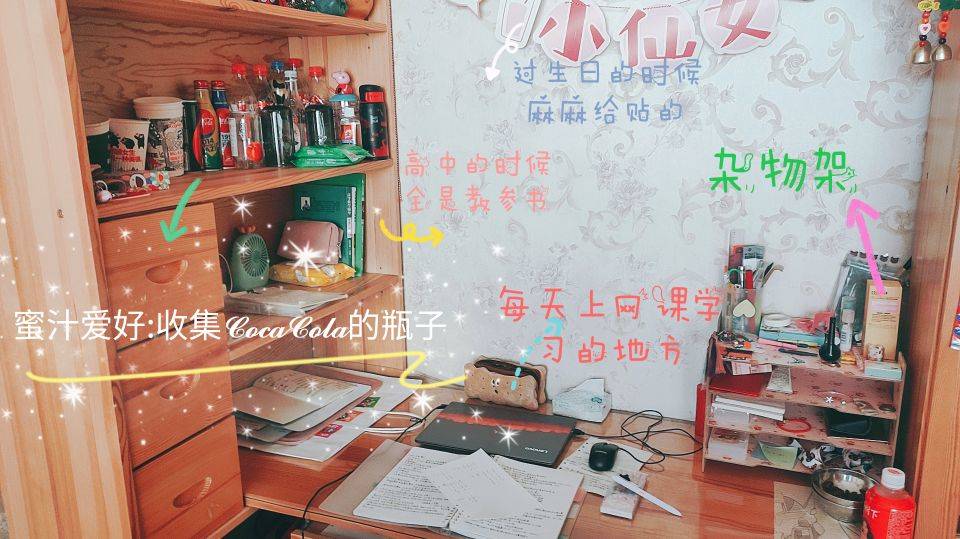 小仙女
过生日的时候
麻麻给贴的
高中的时候
全是教参书
杂物架
每天上网课学
习的地方
蜜汁爱好:收集CocaCola的瓶子
lenovo